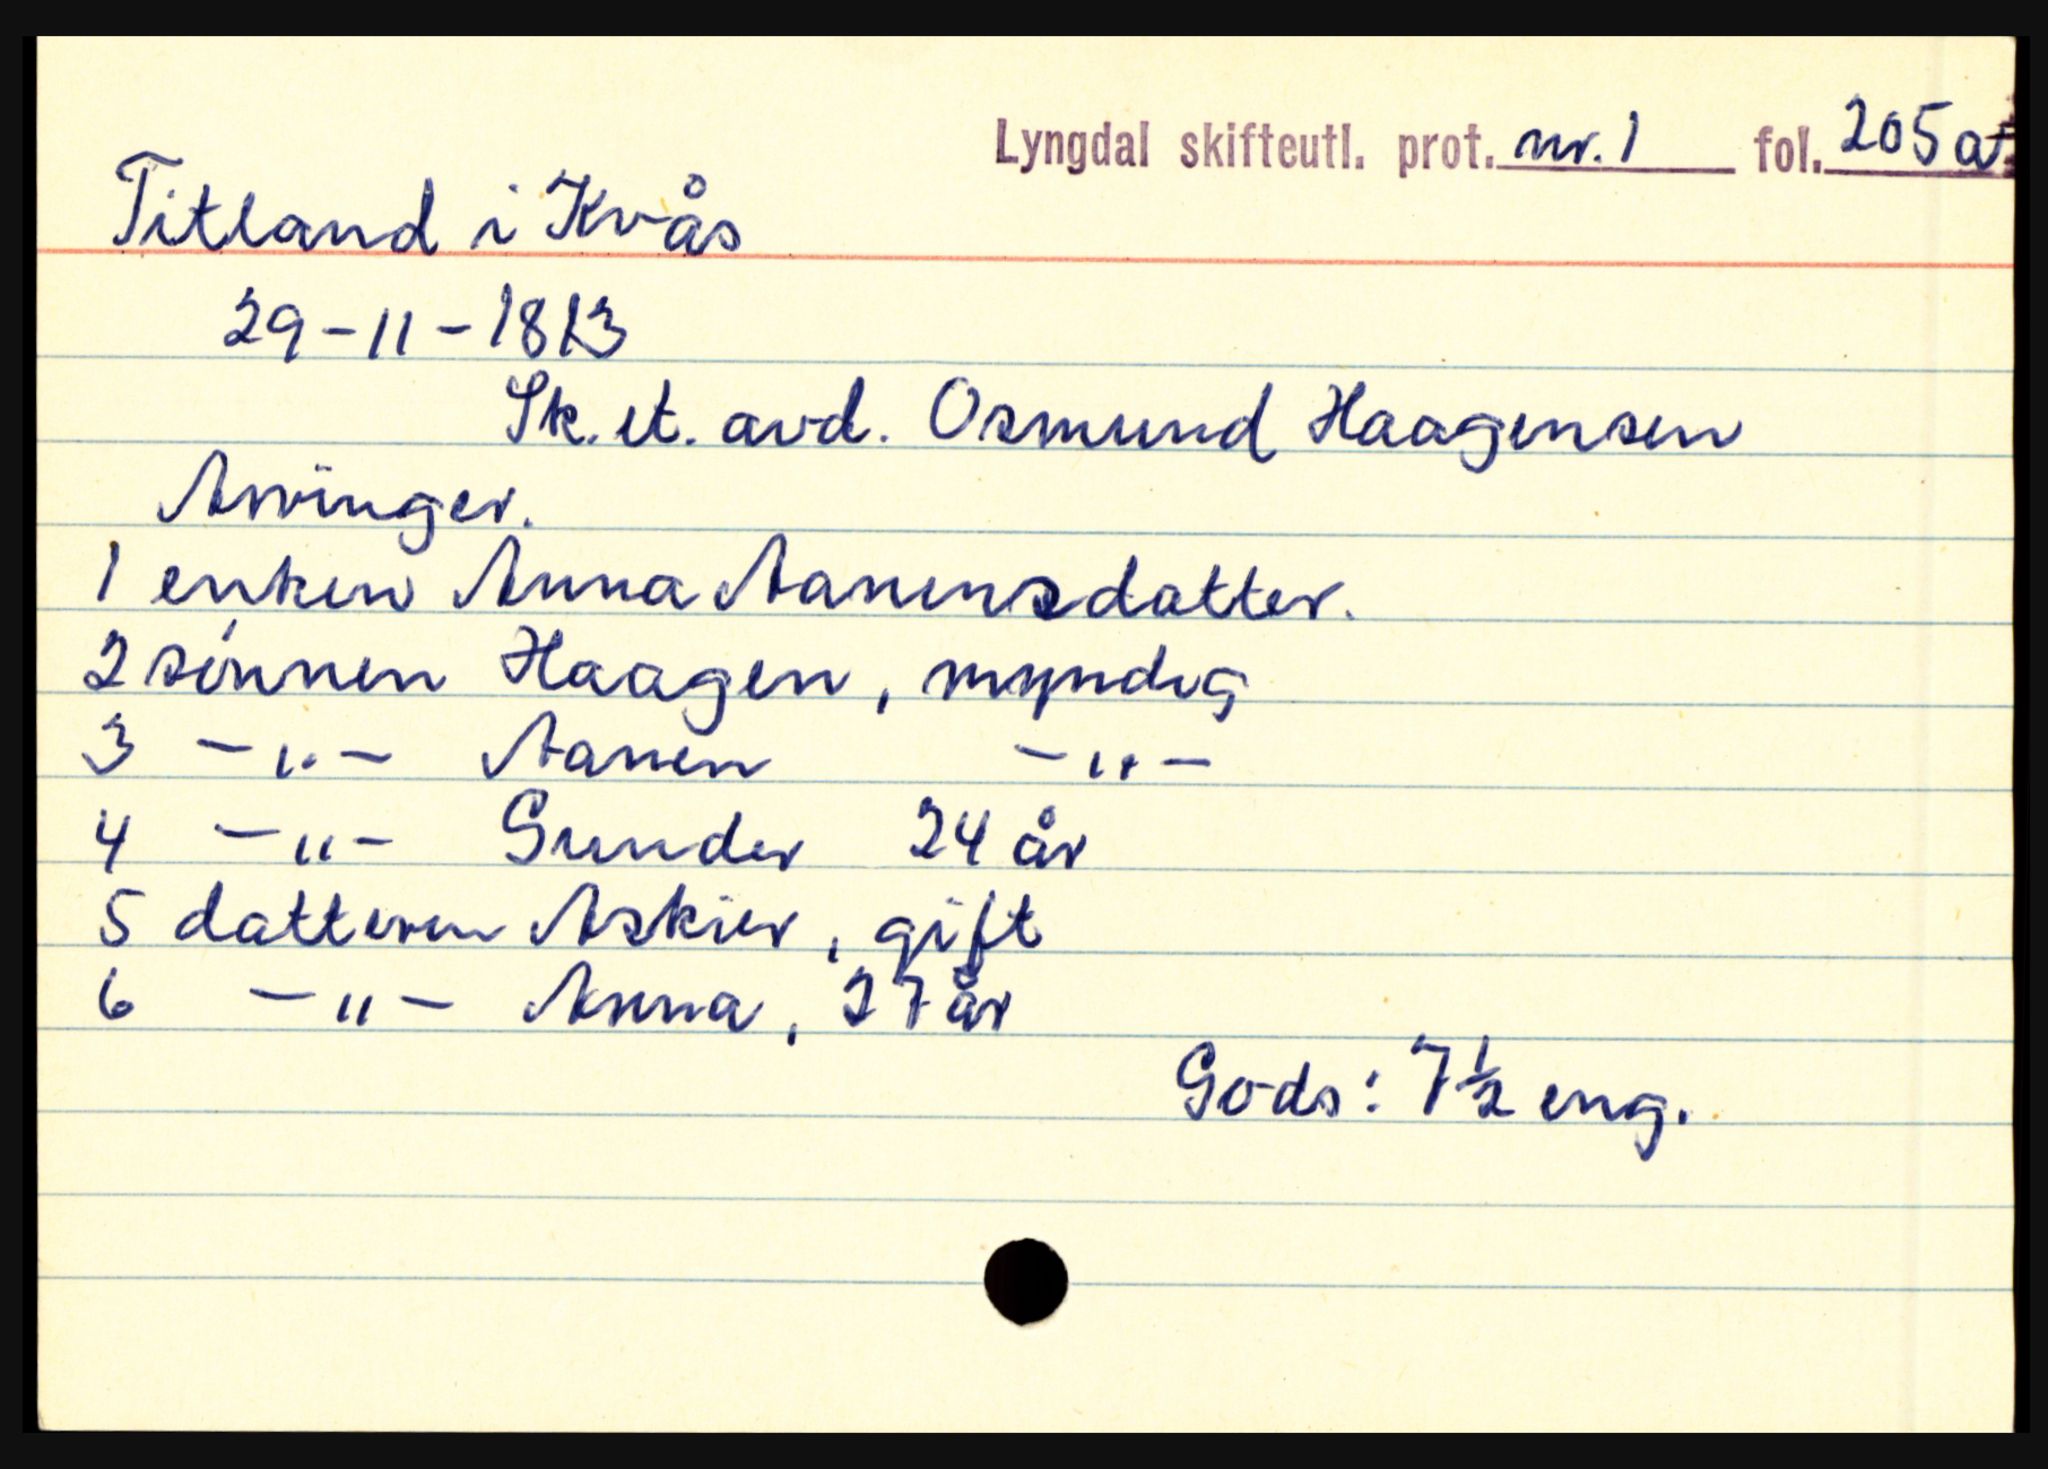 Lyngdal skifteutl. prot. nr. 1 fol. 205a
Titland i Kvås
29-11-1813
Sk. et. avd. Osmund Haagensen
Arvinger.
1 enken Anna Aanensdatter.
2 sønnen Haagen, myndig
3 -"- Aanen -"-
4 -"- Gunder 24 år
5 datteren Askier, gift
6 -"- Anna, 27 år
Gods: 7½ eng.